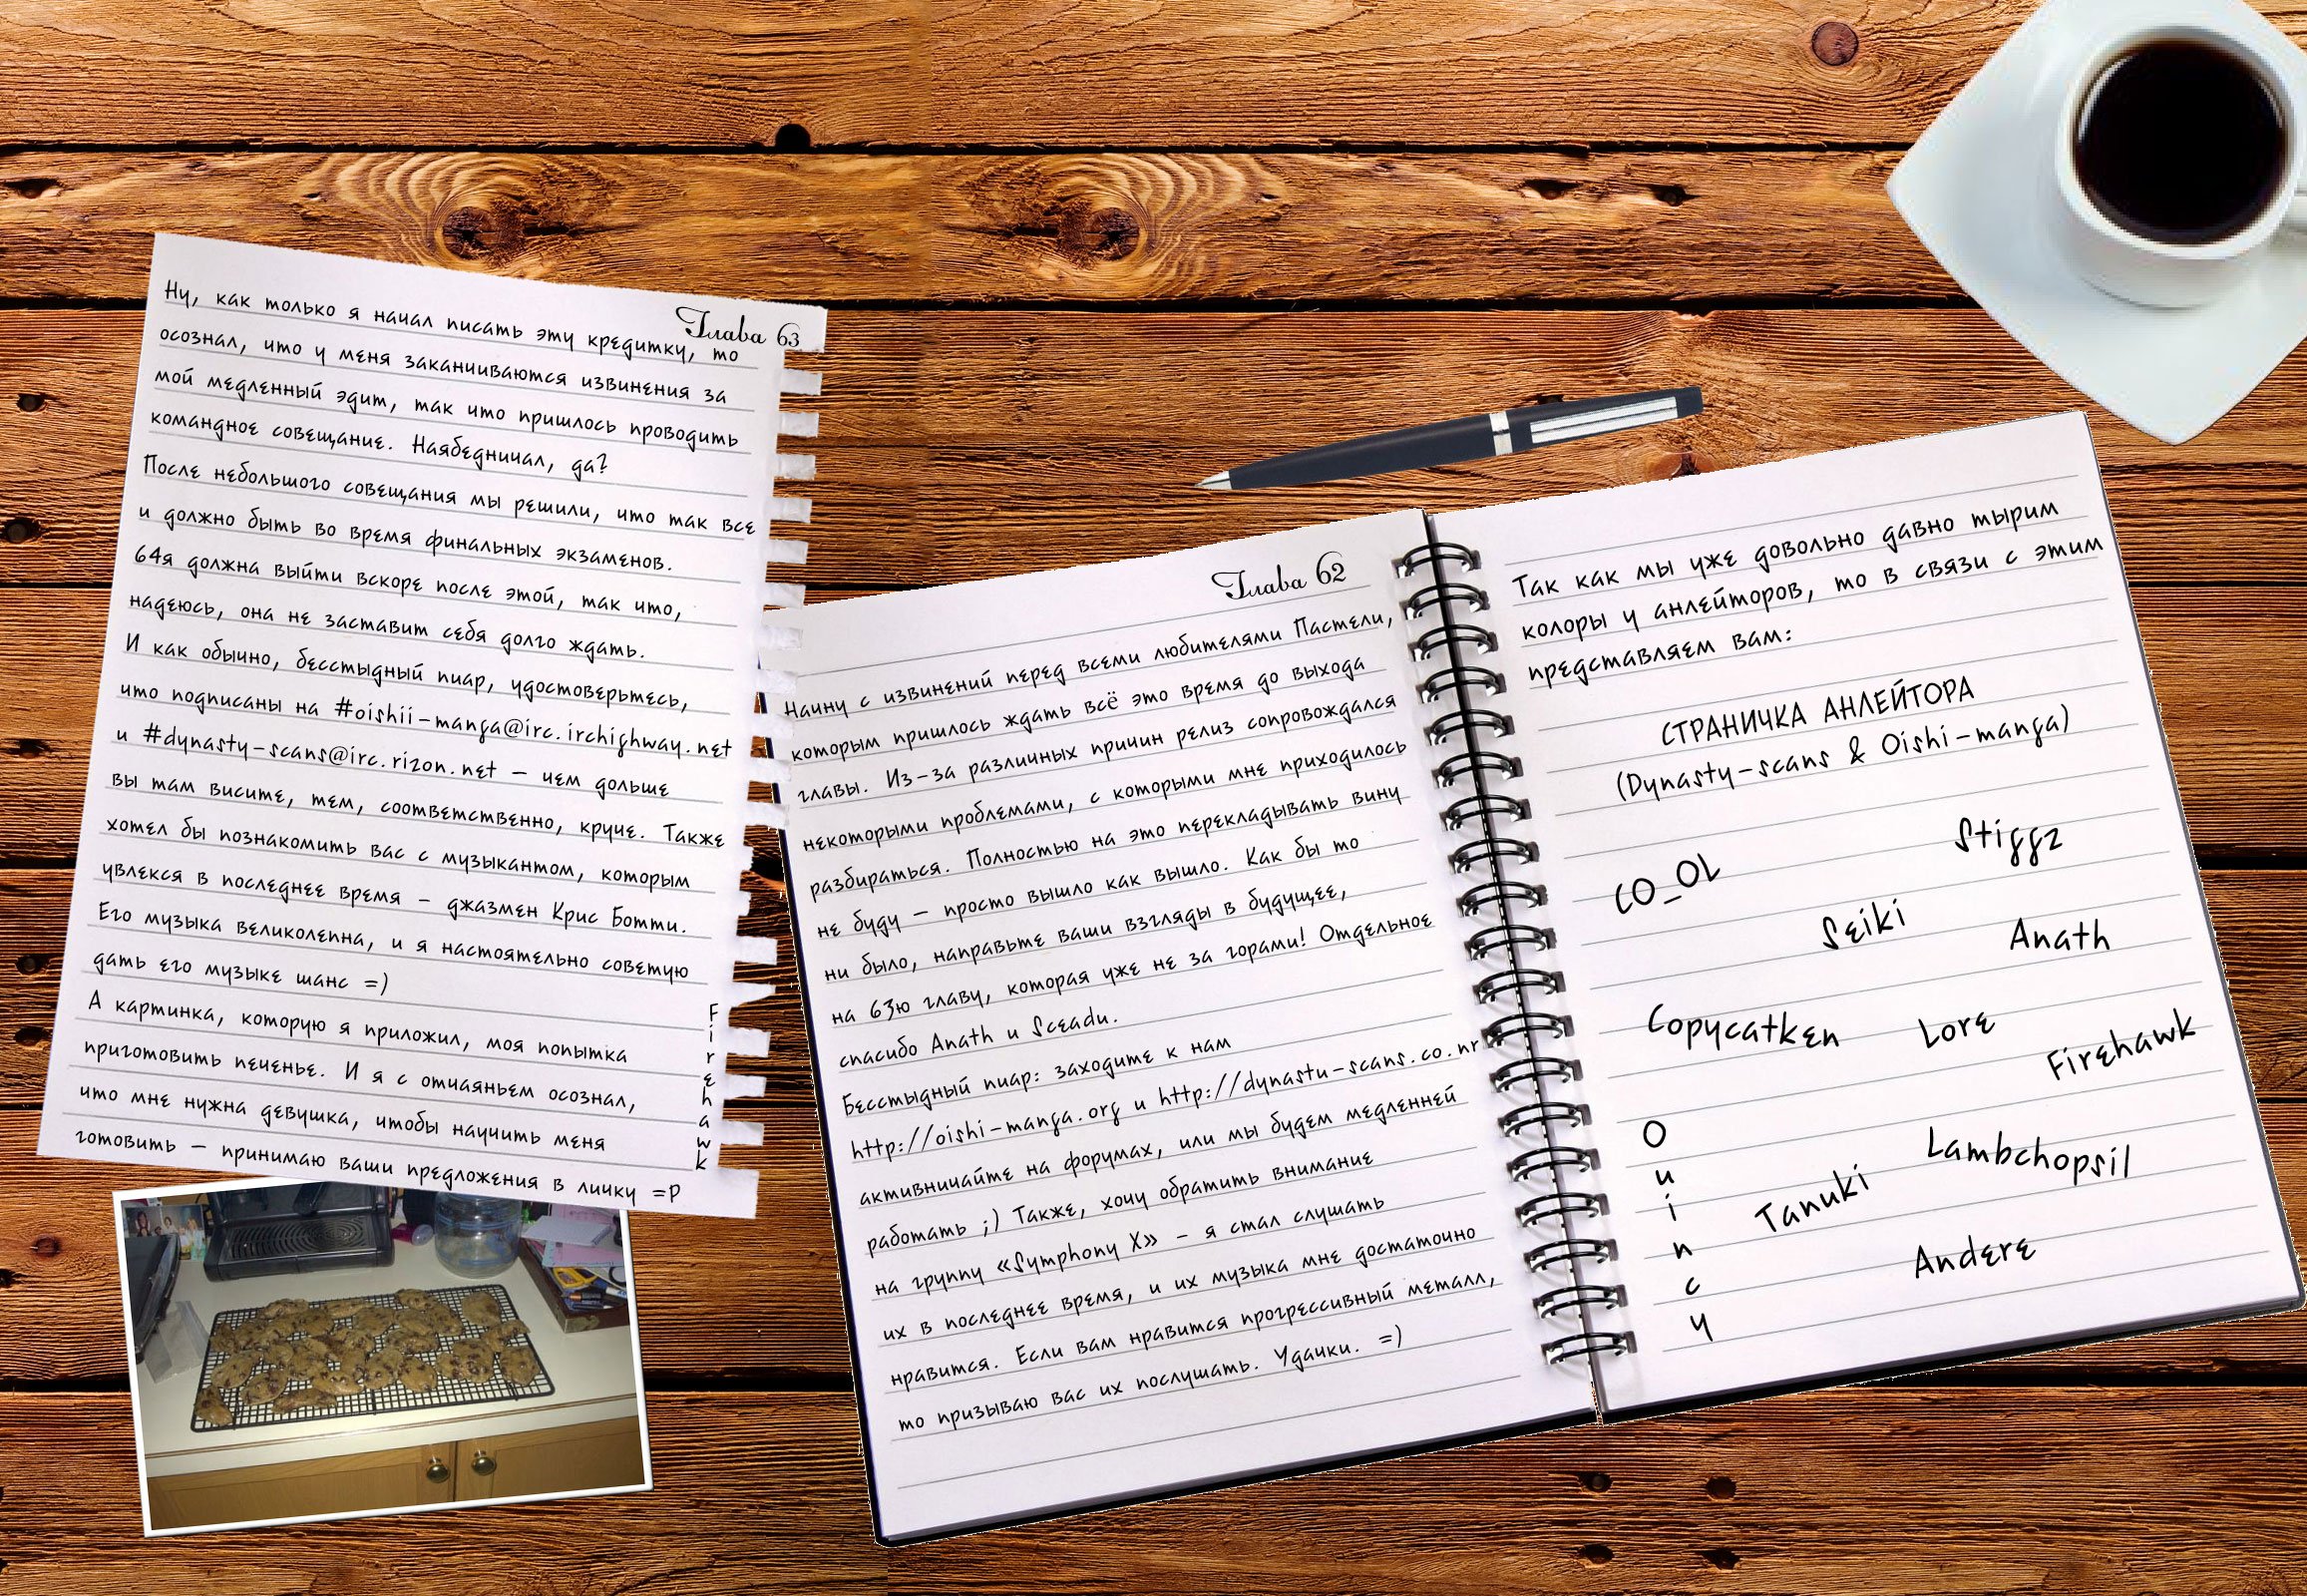 Глава 63
Ну, как только я начал писать эту кредитку, то
осознал, что у меня заканчиваются извинения за
мой медленный эдит, так что пришлось проводить
командное совещание. Наябедничал, да?
После небольшого совещания мы решили, что так все
и должно быть во время финальных экзаменов.
64я должна выйти вскоре после этой, так что,
надеюсь, она не заставит себя долго ждать.
И как обычно, бесстыдный пиар, удостоверьтесь,
что подписаны на #oishii-manga@irc.irchighway.net
и #dynasty-scans@irc.rizon.net – чем дольше
вы там висите, тем, соответственно, круче. Также
хотел бы познакомить вас с музыкантом, которым
увлекся в последнее время – джазмен Крис Ботти.
Его музыка великолепна, и я настоятельно советую
дать его музыке шанс =)
А картинка, которую я приложил, моя попытка
приготовить печенье. И я с отчаяньем осознал,
что мне нужна девушка, чтобы научить меня
готовить – принимаю ваши предложения в личку =P
Firehawk
Глава 62
Начну с извинений перед всеми любителями Пастели,
которым пришлось ждать всё это время до выхода
главы. Из-за различных причин релиз сопровождался
некоторыми проблемами, с которыми мне приходилось
разбираться. Полностью на это перекладывать вину
не буду – просто вышло как вышло. Как бы то
ни было, направьте ваши взгляды в будущее,
на 63ю главу, которая уже не за горами! Отдельное
спасибо Anath и Sceadu.
Бесстыдный пиар: заходите к нам
http://oishi-manga.org и http://dynasty-scans.co.nr
активничайте на форумах, или мы будем медленней
работать ;) Также, хочу обратить внимание
на группу «Symphony X» – я стал слушать
их в последнее время, и их музыка мне достаточно
нравится. Если вам нравится прогрессивный металл,
то призываю вас их послушать. Удачки. =)
Так как мы уже довольно давно тырим
колоры у анлейторов, то в связи с этим
представляем вам:
СТРАНИЧКА АНЛЕЙТОРА
(Dynasty-scans & Oishi-manga)
CO_OL
Stiggz
Seiki
Anath
Copycatken
Lore
Firehawk
Ouincy
Tanuki
Lambchopsil
Andere